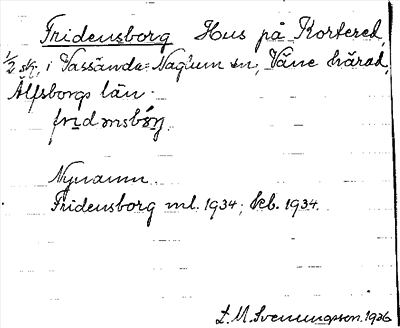 Fridensborg Hus på Kortered,
1/2 skj. i Vassända-Naglum sn, Väne härad,
Älfsborgs län.
fridənsbårj
Nynamn.
Fridensborg ml. 1934; kb. 1934.
L. M. Svenungsson. 1936